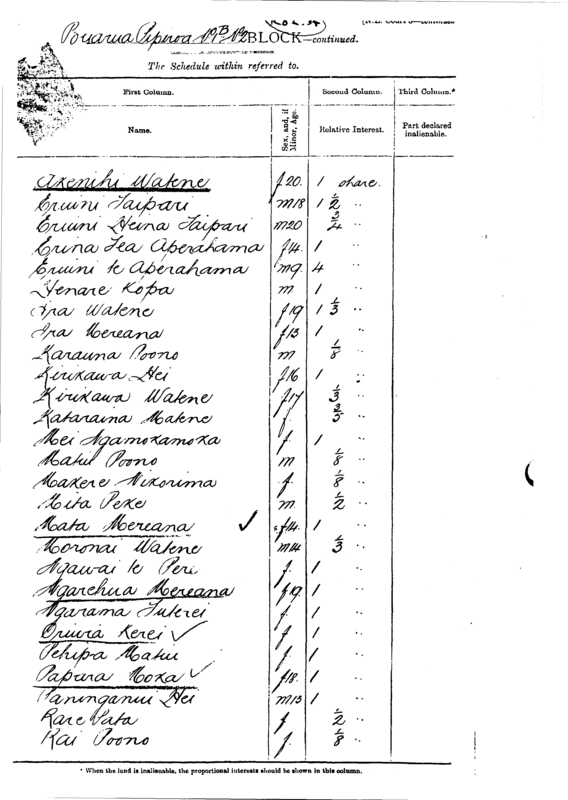 BLOCK—continued.
The Schedule within referred to.
First Column. Second Column. Third Column.*
Name. Sex, and, if Minor, Age. Relative Interest. Part declared inalienable.
Akenihi Watene f 20. 1 share.
Eruini Taipari m 18 1 1/2 "
Eruini Heina Taipari m 20 3/4 "
Erina Tea Aperahama f 4. 1 "
Eruini te Aperahama m 9. 4 "
Henare Kopa m 1 "
Ira Watene f 19 1 1/3 "
Ira Mereana f 13 1 "
Karauna Poono m 1/8 "
Kirikawa Hei f 16 1 "
Kirikawa Watene f 17 1/3 "
Kataraina Matene f. "
Mei Ngamokamoka f. 1 "
Matiu Poono m 1/8 "
Makere Nikorima f. 1/8 "
Mita Peke m. 1/2 "
Mata Mereana ✓ f 14. 1 "
Moronai Watene m 14 1/3 "
Ngawai te Pere f. 1 "
Ngarehua Mereana f 19. 1 "
Ngarama Tuterei f. 1 "
Oriwia Kerei ✓ f 1 "
Pehipa Matiu f. 1 "
Papara Moka ✓ f 18. 1 "
Paninganui Hei m 13 1 "
Rare Pata f 1/2 "
Rai Poono f. 1/8 "
* When the land is inalienable, the proportional interests should be shown in this column.